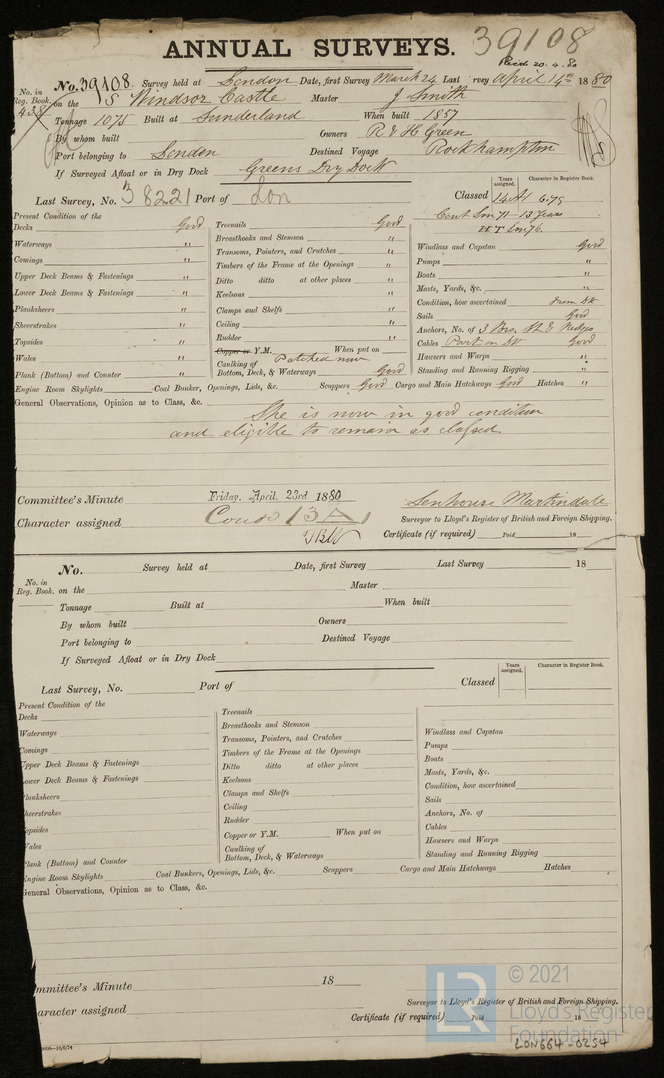 ANNUAL SURVEYS. 39108
Recd 20.4.80
No. in Reg. Book. 438
No. 39108. Survey held at London Date, first Survey March 24 Last Survey April 14th 1880
on the S Windsor Castle Master J Smith
Tonnage 1075 Built at Sunderland When built 1857
By whom built Owners R & H Green
Port belonging to London Destined Voyage Rockhampton
If Surveyed Afloat or in Dry Dock Greens Dry Dock
Years assigned. Character in Register Book.
Last Survey, No. 38221 Port of Lon Classed 14 A1 6.79
Cont Lon 71-13 Years
HT Lon 76
Present Condition of the
Decks Good
Waterways "
Comings "
Upper Deck Beams & Fastenings "
Lower Deck Beams & Fastenings "
Planksheers "
Sheerstrakes "
Topsides "
Wales "
Plank (Bottom) and Counter "
Treenails Good
Breasthooks and Stemson "
Transoms, Pointers, and Crutches "
Timbers of the Frame at the Openings "
Ditto ditto at other places "
Keelsons "
Clamps and Shelfs "
Ceiling "
Rudder "
Copper or Y.M. When put on
Patched now
Caulking of Bottom, Deck, & Waterways Good
Windlass and Capstan Good
Pumps "
Boats "
Masts, Yards, &c. "
Condition, how ascertained from Dk
Sails Good
Anchors, No. of 3 Brs. St & Kedges
Cables Part on Dk Good
Hawsers and Warps "
Standing and Running Rigging "
Engine Room Skylights Coal Bunker, Openings, Lids, &c. Scuppers Good Cargo and Main Hatchways Good Hatches "
General Observations, Opinion as to Class, &c.
She is now in good condition
and eligible to remain as classed
Committee's Minute Friday, April, 23rd 1880
Senhouse Martindale
Character assigned Contd 13 A1
Surveyor to Lloyd's Register of British and Foreign Shipping.
Certificate (if required) Paid 18
No. Survey held at Date, first Survey Last Survey 18
No. in Reg. Book. on the Master
Tonnage Built at When built
By whom built Owners
Port belonging to Destined Voyage
If Surveyed Afloat or in Dry Dock
Years assigned. Character in Register Book.
Last Survey, No. Port of Classed
Present Condition of the
Decks
Waterways
Comings
Upper Deck Beams & Fastenings
ower Deck Beams & Fastenings
lanksheers
heerstrakes
opsides
Vales
Plank (Bottom) and Counter
Treenails
Breasthooks and Stemson
Transoms, Pointers, and Crutches
Timbers of the Frame at the Openings
Ditto ditto at other places
Keelsons
Clamps and Shelfs
Ceiling
Rudder
Copper or Y.M. When put on
Caulking of Bottom, Deck, & Waterways
Windlass and Capstan
Pumps
Boats
Masts, Yards, &c.
Condition, how ascertained
Sails
Anchors, No. of
Cables
Hawsers and Warps
Standing and Running Rigging
Engine Room Skylights Coal Bunkers, Openings, Lids, &c. Scuppers Cargo and Main Hatchways Hatches
General Observations, Opinion as to Class, &c.
mmittee's Minute 18
aracter assigned
Surveyor to Lloyd's Register of British and Foreign Shipping.
Certificate (if required) Paid 18
LR © 2021
Lloyd's Register
Foundation
LON664-0254